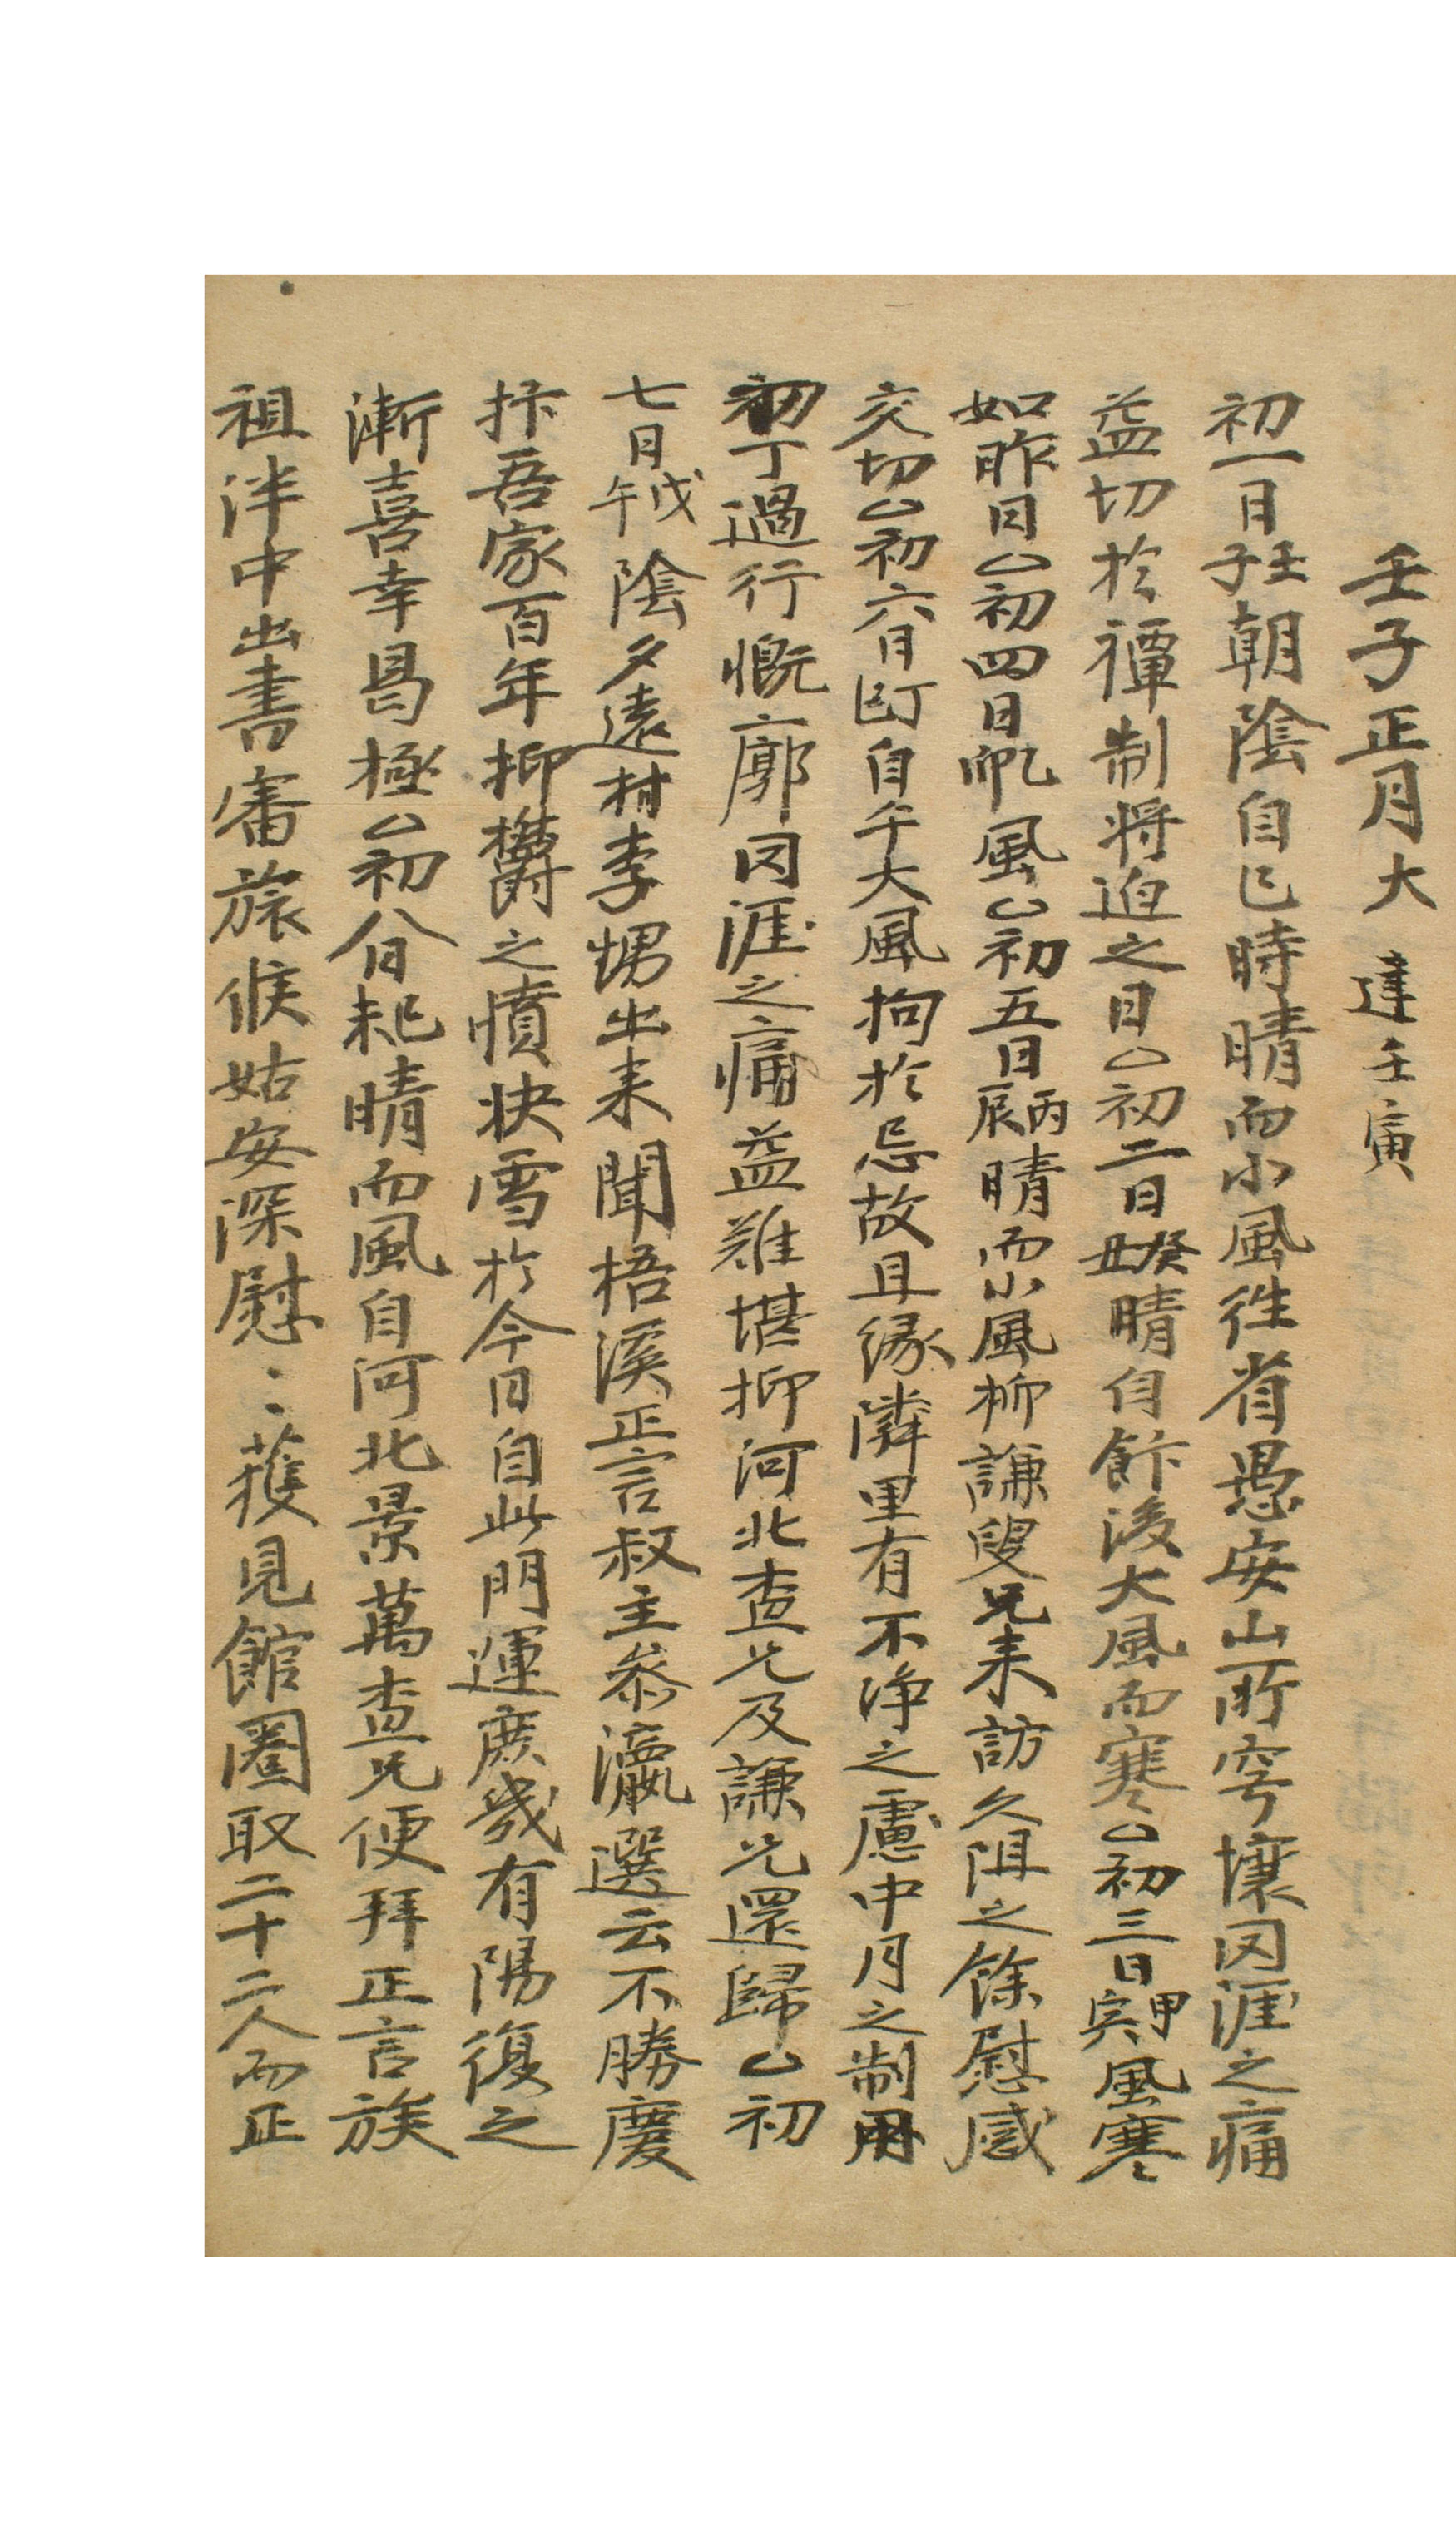 壬子正月大 建壬寅
初一日壬子朝陰自巳時晴而小風徃省愚安山所穹壤罔涯之痛
益切於禫制將迫之日○初二日癸丑晴自飯後大風而寒○初三日甲寅風寒
如昨日○初四日乙卯風○初五日丙辰晴而小風柳謙叟兄来訪久阻之餘慰感
交切○初六日丁巳自午大風拘於忌故且緣隣里有不净之慮中月之制用
初丁過行慨廓罔涯之痛益難堪抑河北查兄及謙兄還歸○初
七日戊午陰夕遠村李甥出来聞梧溪正言叔主叅瀛選云不勝慶
抃吾家百年抑欝之憤快雪於今日自此門運庶幾有陽復之
漸喜幸曷極○初八日己未晴而風自河北景萬查兄便拜正言族
祖泮中出書審旅候姑安深慰〻〻獲見館圈取二十二人而正